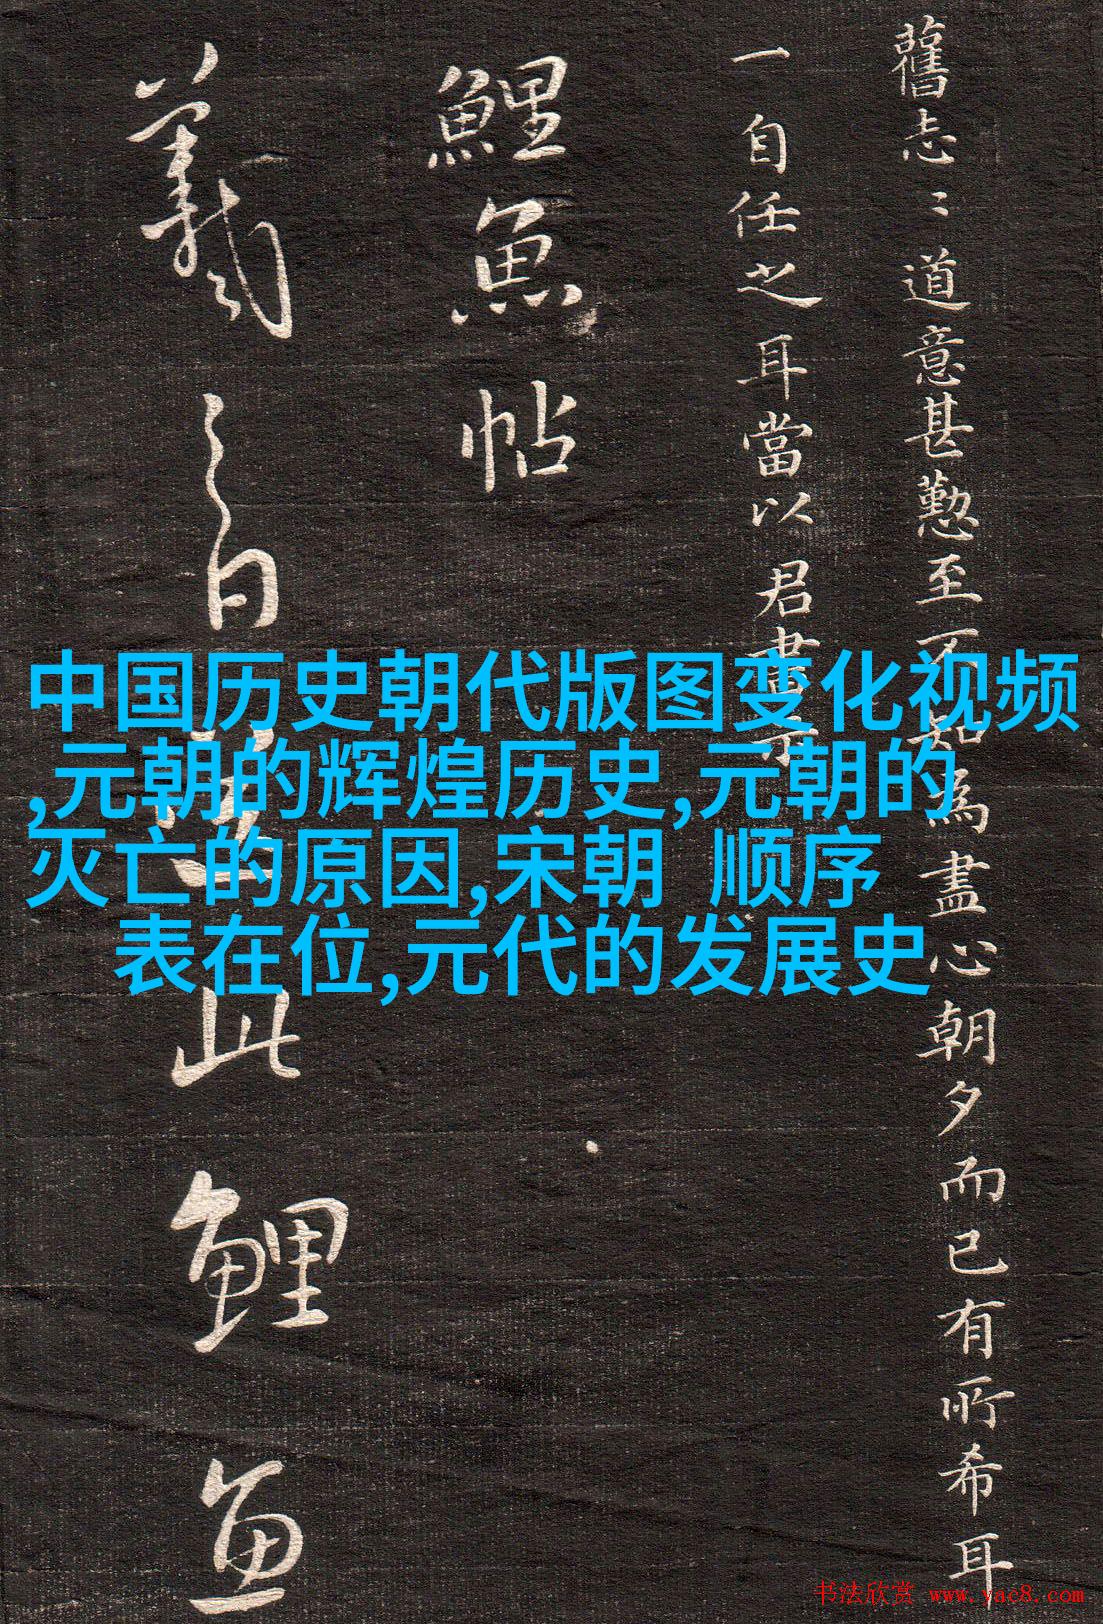 舊志〻〻道意甚懃至不知為盡心朝夕而已有所希耳
一自任之耳當以君書示
鯉魚帖
羲之白
此鯉魚
中国历史朝代版图变化视频
,元朝的辉煌历史,元朝的
灭亡的原因,宋朝 顺序
表在位,元代的发展史
书法欣赏 www.yac8.com